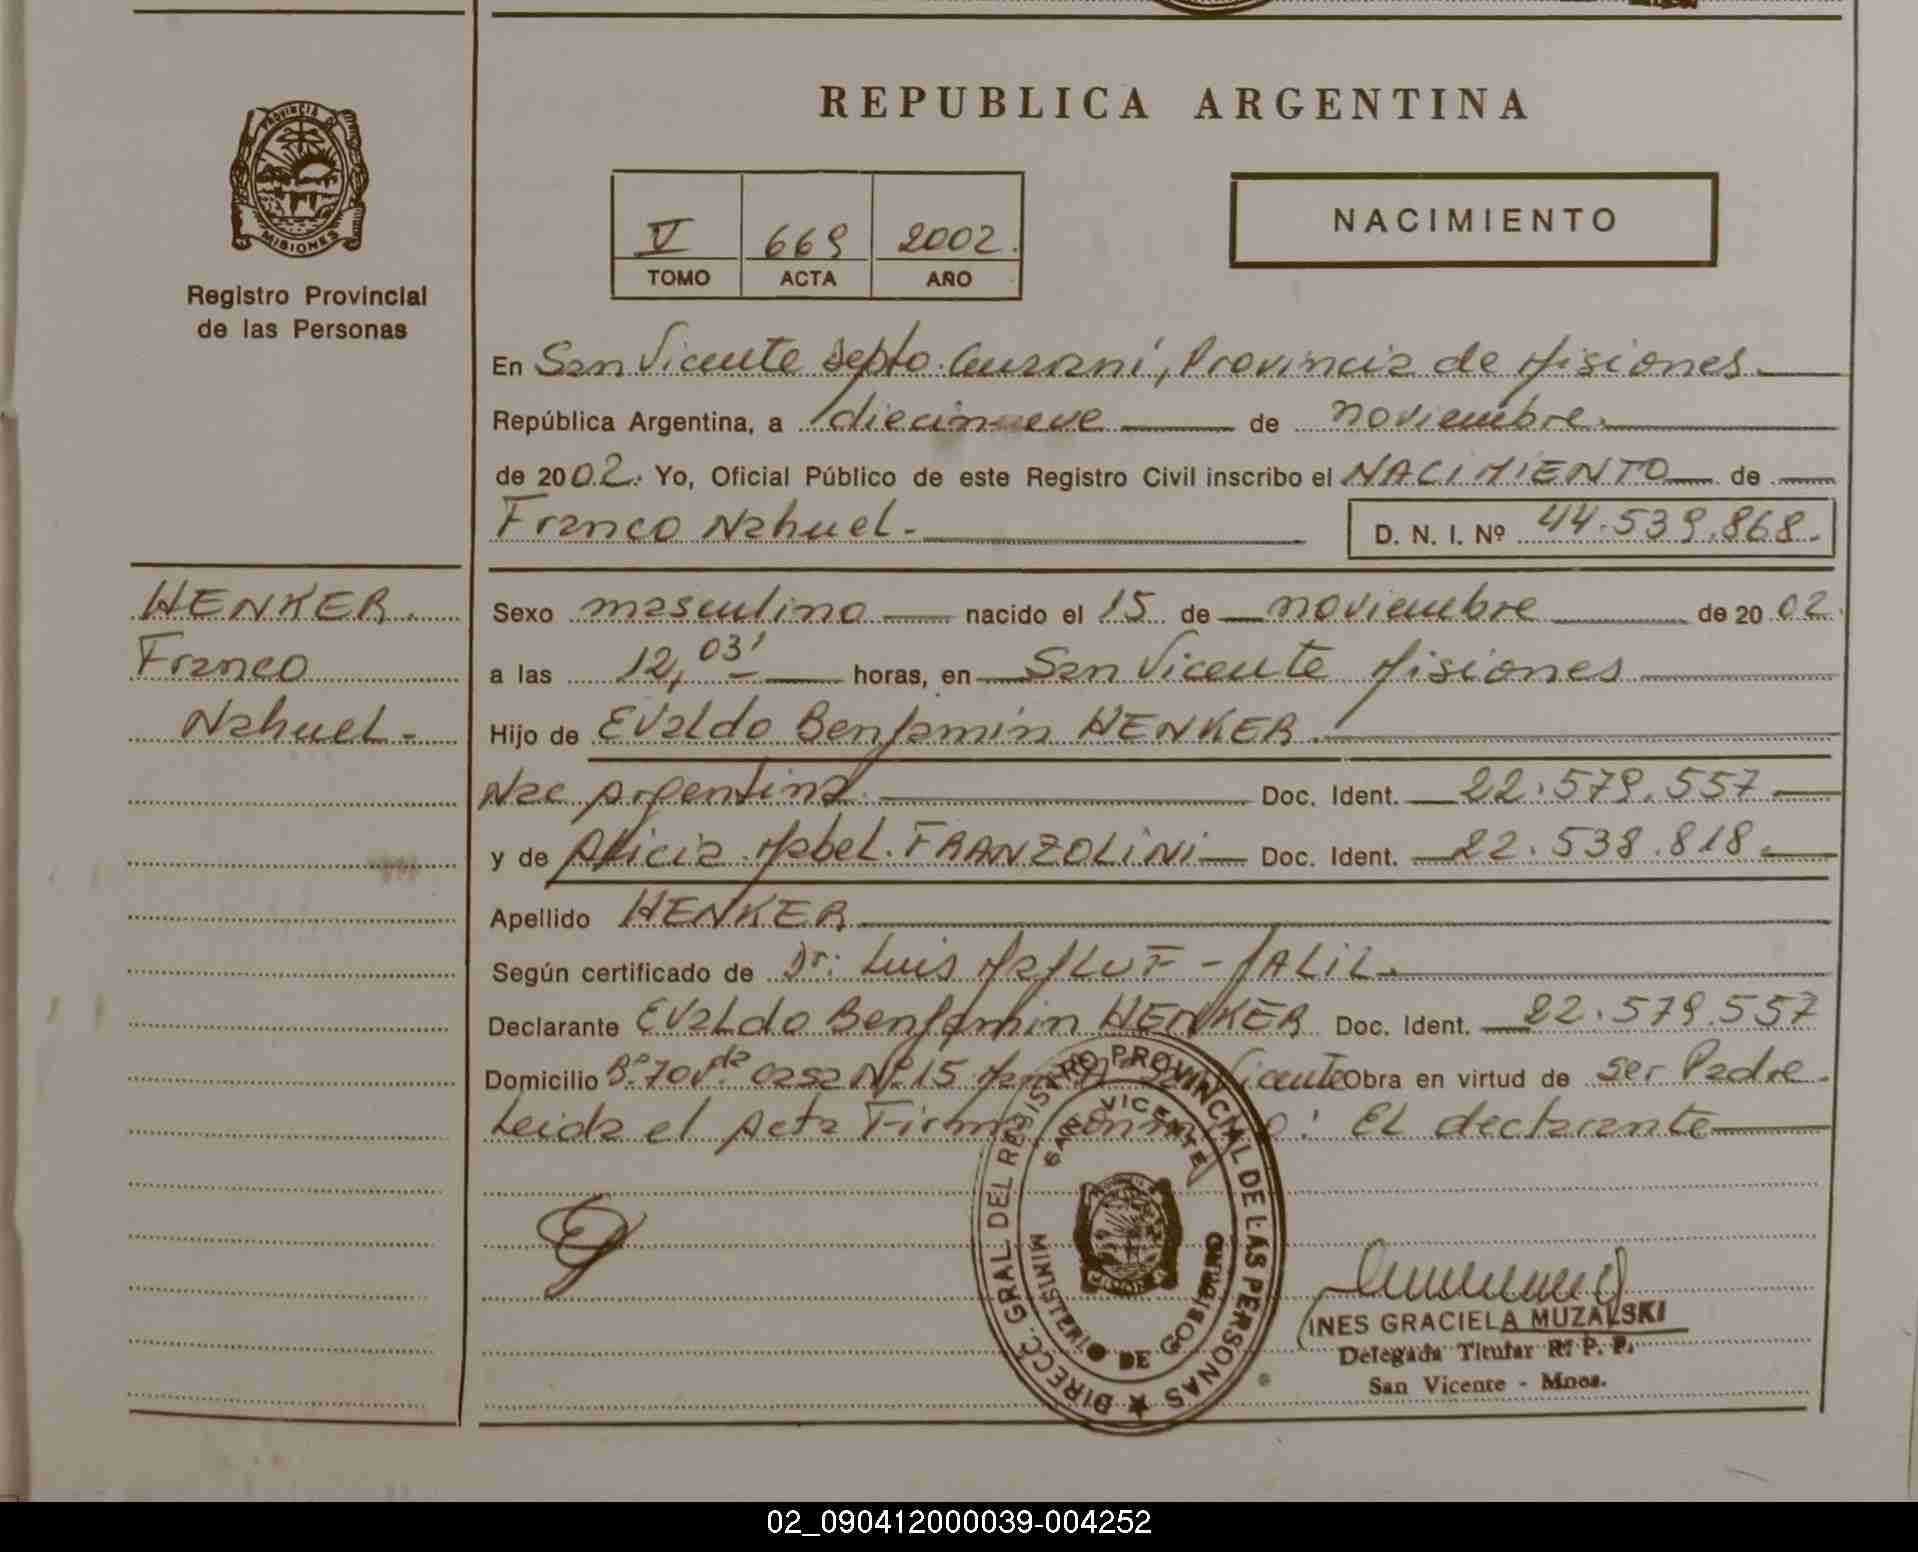 REPUBLICA ARGENTINA
PROVINCIA DE
MISIONES
Registro Provincial
de las Personas
V 669 2002.
TOMO ACTA AÑO
NACIMIENTO
En San Vicente Depto. Guaraní, Provincia de Misiones.
República Argentina, a diecinueve de noviembre.
de 2002. Yo, Oficial Público de este Registro Civil inscribo el NACIMIENTO de
Franco Nahuel.- D. N. I. Nº 44.539.868.
HENKER.
Franco
Nahuel.-
Sexo masculino nacido el 15 de noviembre de 2002.
a las 12,03' horas, en San Vicente Misiones
Hijo de Evaldo Benjamin HENKER.
Nac Argentina. Doc. Ident. 22.579.557
y de Alicia Mabel. FRANZOLINI Doc. Ident. 22.538.818.
Apellido HENKER
Según certificado de Dr. Luis - JALIL.
Declarante Evaldo Benjamin HENKER Doc. Ident. 22.579.557
Domicilio Bº 70 Vdas casa Nº 15 Vicente Obra en virtud de ser Padre.
Leida el Acta El declarante
DIRECC. GRAL DEL REGISTRO PROVINCIAL DE LAS PERSONAS
SAN VICENTE
MINISTERIO DE GOBIERNO
MISIONES
INES GRACIELA MUZALSKI
Delegada Titular R. P. P.
San Vicente - Mnes.
02_090412000039-004252